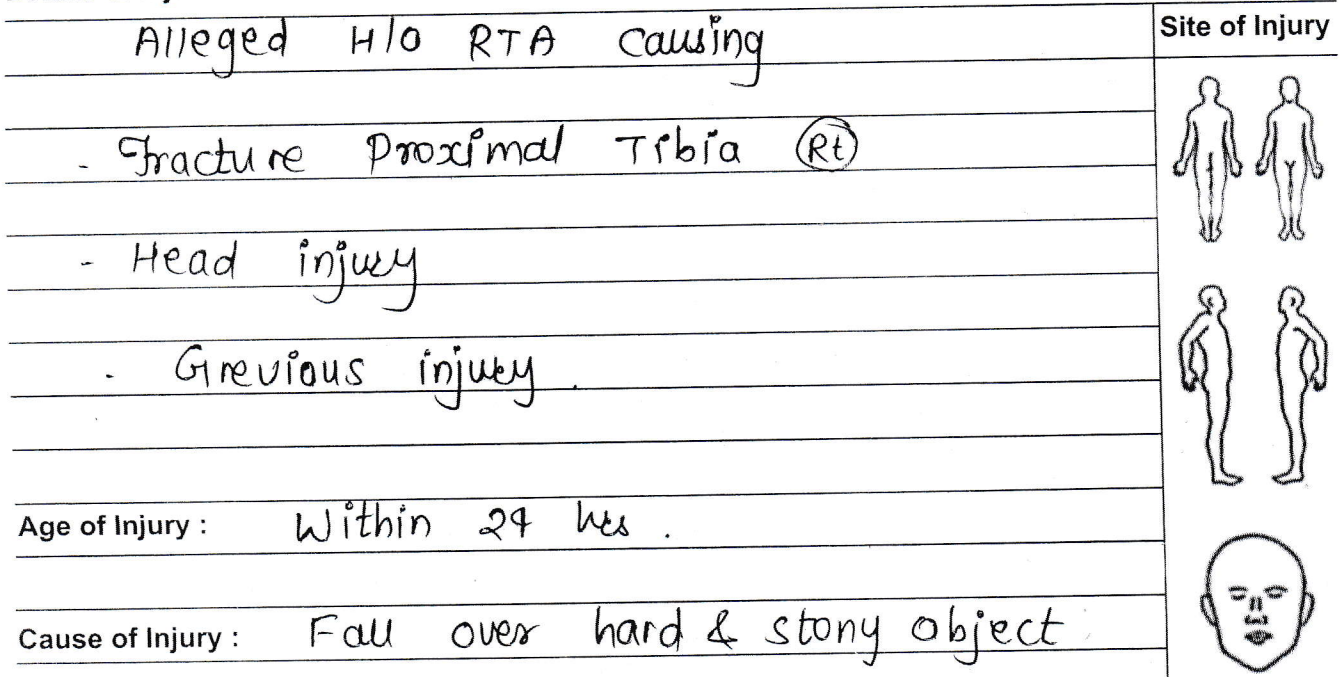 Alleged H/O RTA causing
Site of Injury
- Fracture Proximal Tibia Rt
- Head injury
- Grevious injury.
Age of Injury : Within 24 hrs.
Cause of Injury : Fall over hard & stony object